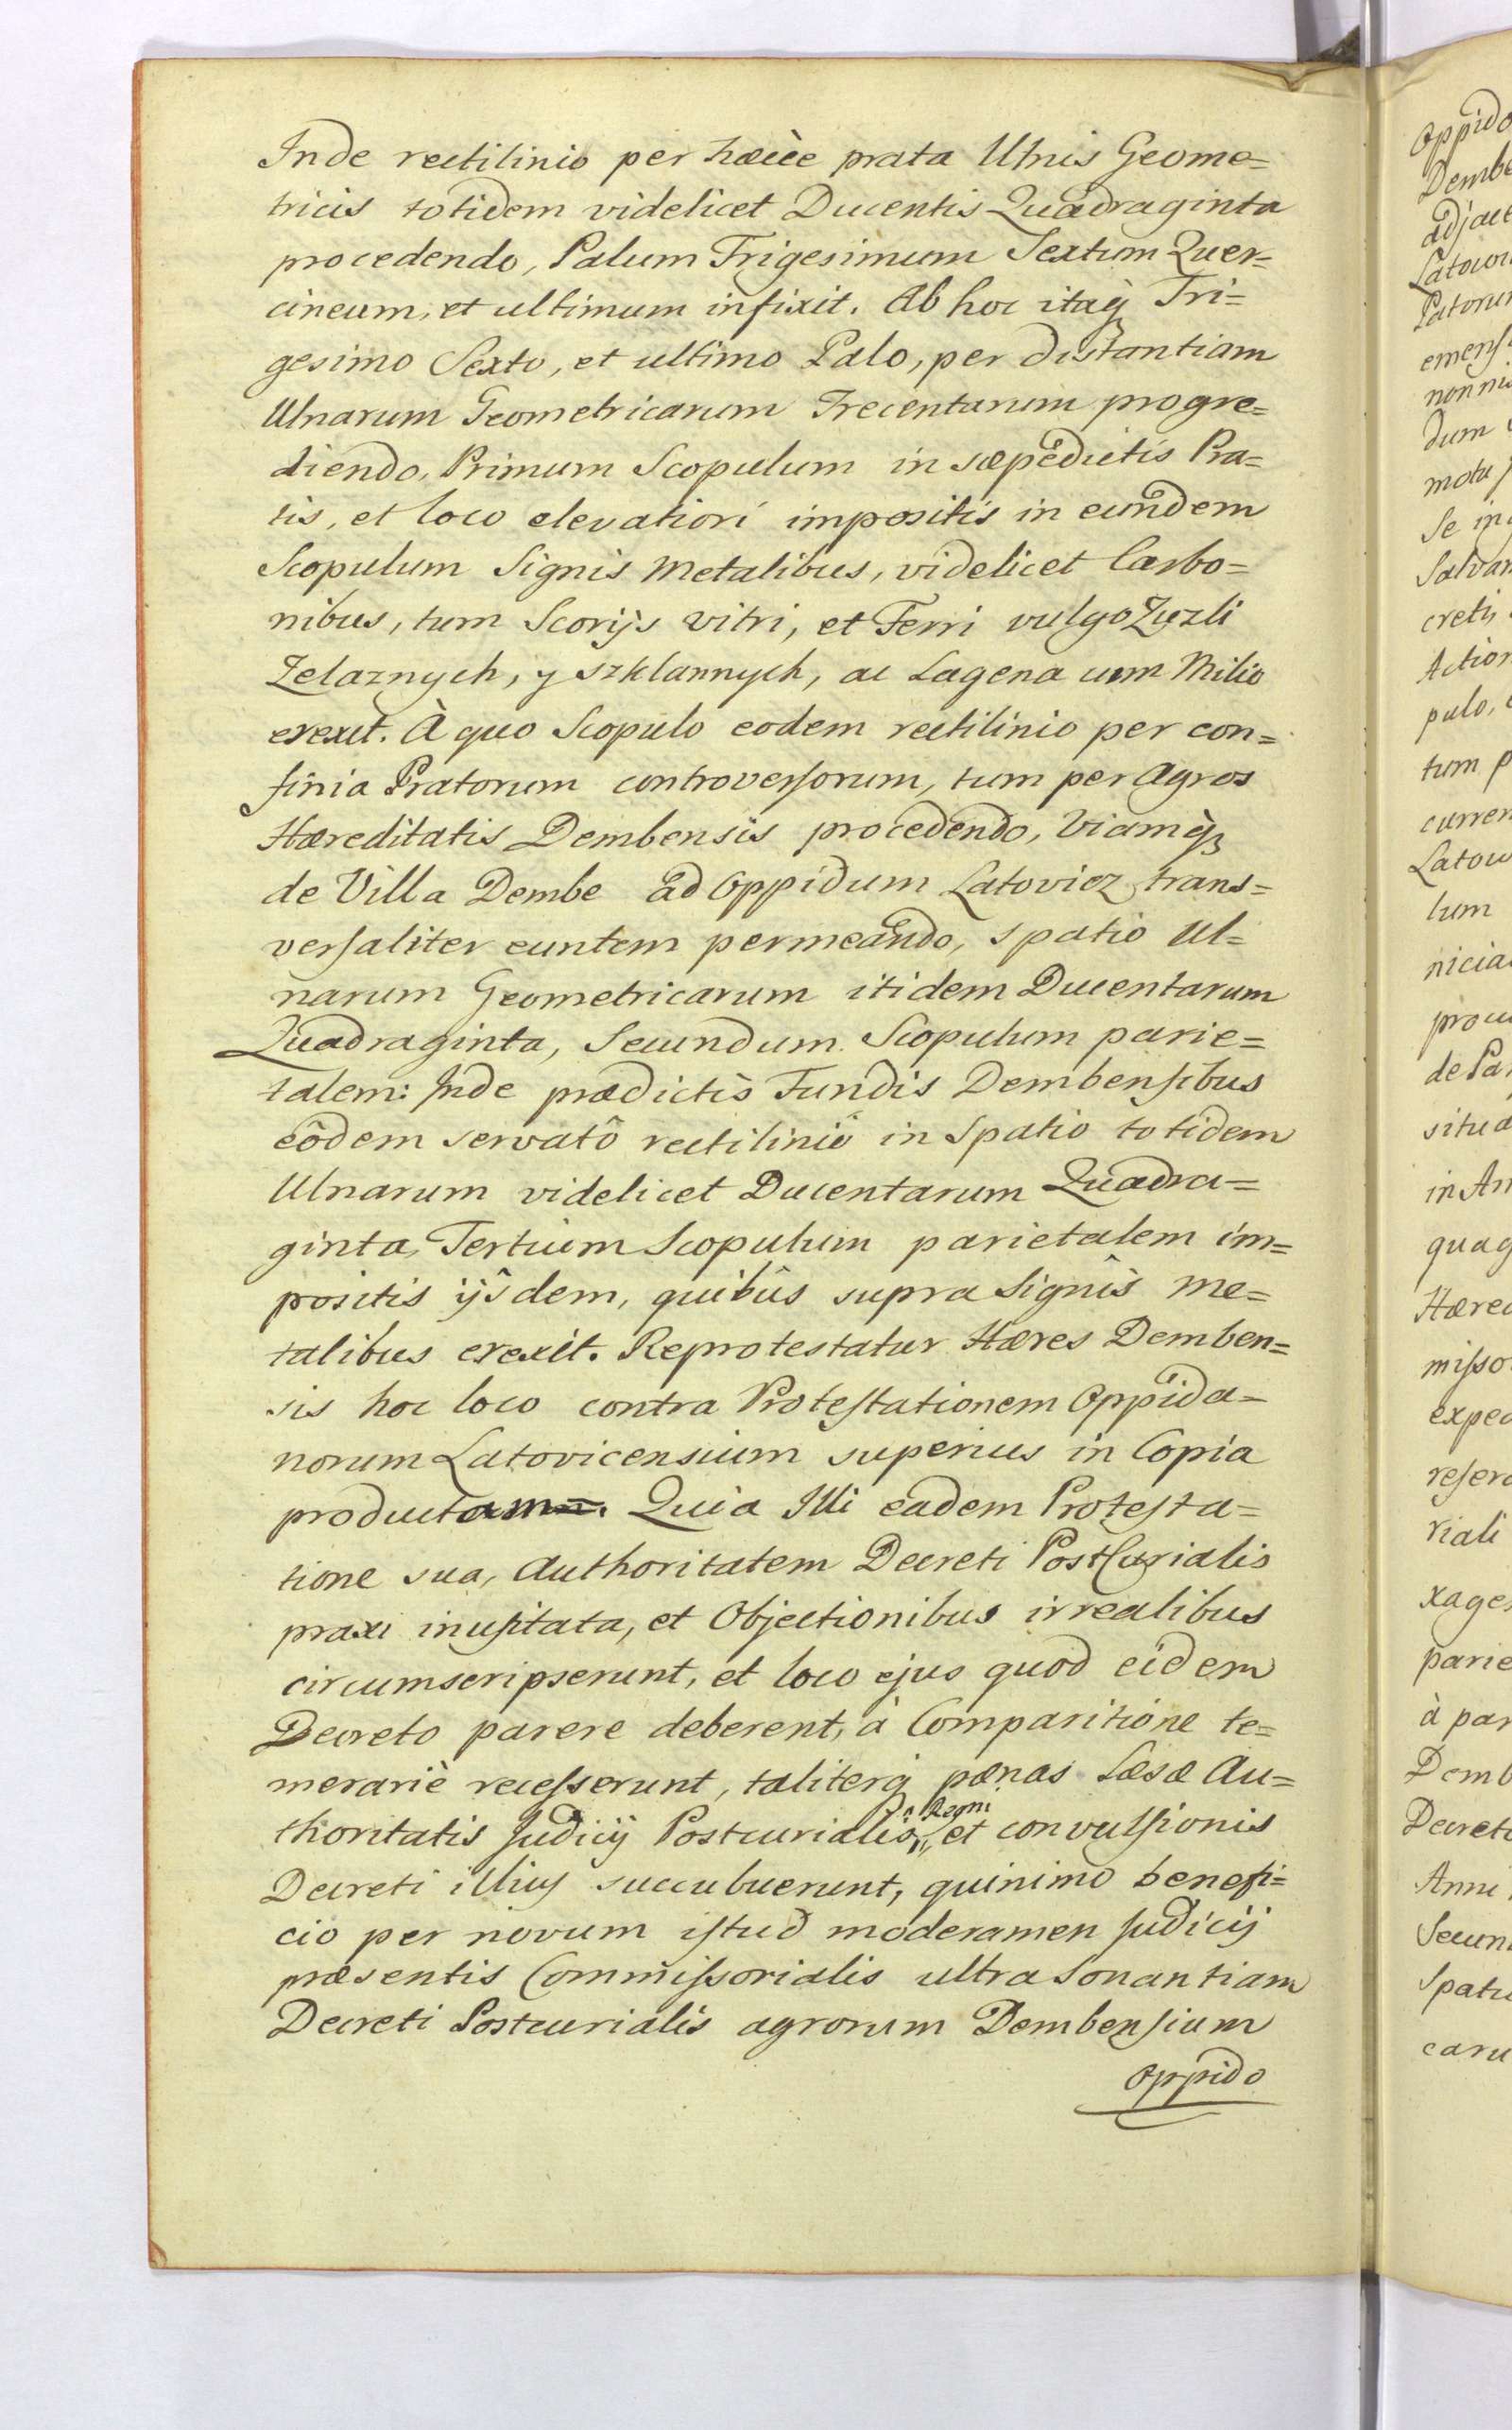 Inde rectilinio per hæcce prata Ulnis Geome=
tricis totidem videlicet Ducentis Quadraginta
procedendo, Palum Trigesimum Sextum Quer=
cineum, et ultimum infixit. Ab hoc itaq́ Tri=
gesimo Sexto, et ultimo Palo, per distantiam
Ulnarum Geometricarum Trecentarum progre=
diendo, Primum Scopulum in sæpedictis Pra=
tis, et loco elevatiori impositis in eundem
Scopulum Signis Metalibus, videlicet Carbo=
nibus, tum Scorijs vitri, et Ferri vulgo Zyzli
Zelaznych, y szklannych, ac Lagena cum Milio
erexit. À quo Scopulo eodem rectilinio per con=
finia Pratorum controversorum, tum per Agros
Hæreditatis Dembensis procedendo, Viamq́
de Villa Dembe ad Oppidum Latovicz trans=
versaliter euntem permeando, spatio Ul=
narum Geometricarum itidem Ducentarum
Quadraginta, Secundum Scopulum parie=
talem: Inde prædictis Fundis Dembensibus
eôdem servatô rectiliniô in Spatio totidem
Ulnarum videlicet Ducentarum Quadra=
ginta, Tertium Scopulum parietalem im=
positis ijsdem, quibus supra Signis me=
talibus erexit. Reprotestatur Hæres Demben=
sis hoc loco contra Protestationem Oppida=
norum Latovicensium superius in Copia
productam=. Quia Illi eadem Protesta=
tione sua, Authoritatem Decreti PostCurialis
praxi inusitata, et Objectionibus irrealibus
circumscripserunt, et loco ejus quod eidem
Decreto parere deberent, à Comparitione te=
merariè recesserunt, taliterq́ pænas Læsæ Au=
Regni
thoritatis Judicij Postcurialis, et convulsionis
Decreti illius succubuerunt, quinimo benefi=
cio per novum istud moderamen Judicij
præsentis Commissorialis ultra Sonantiam
Decreti Postcurialis agrorum Dembensium
Oppido
Oppido
Dembe
adjace
emens
non ni
dum
Se in
Salvam
cretis
Action
pulo,
tum p
curren
Latow
lum
nicia
de Pa
situa
Hæred
misso
exped
reserv
riali
xages
parie
à par
Demb
Decret
Secun
Spati
caru